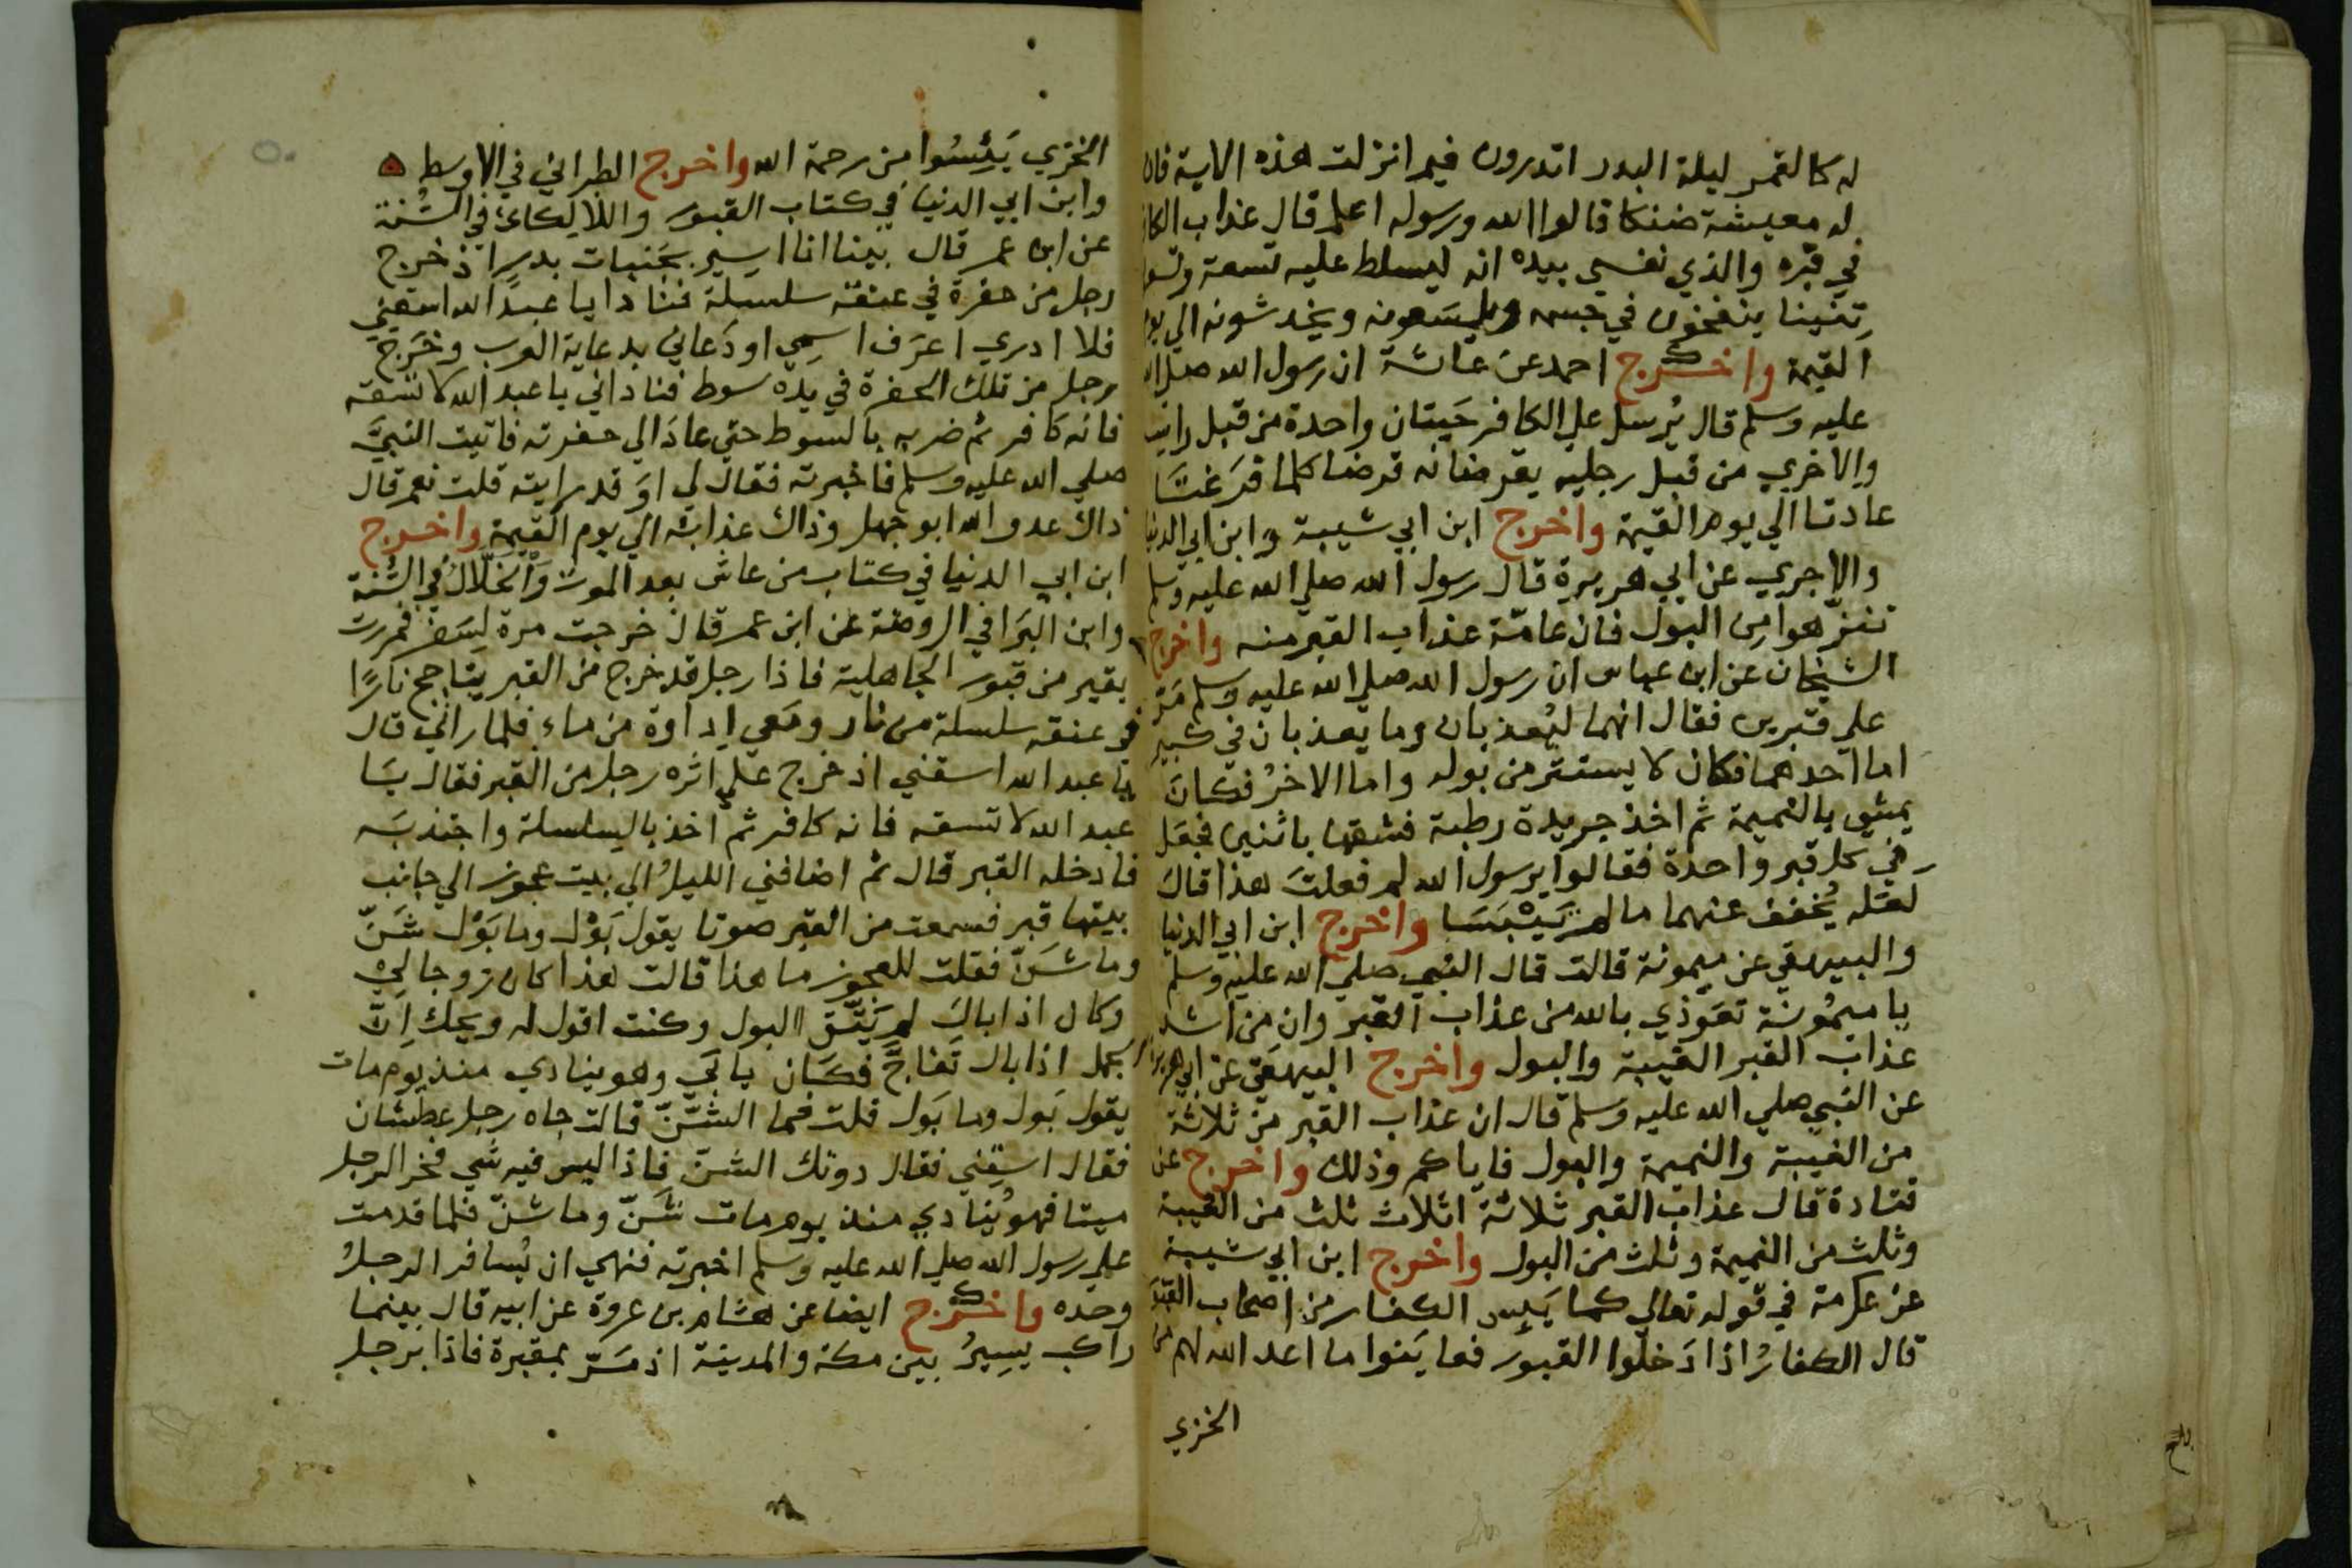 له كالقمر ليلة البدر اتدرون فيم انزلت هذه الاية فان
له معيشة ضنكا قالوا الله ورسوله اعلم قال عذاب الكافر
في قبره والذي نفسي بيده انه ليسلط عليه تسعة وتسعون
تنينا ينفخون في جسمه ويلسعونه ويخدشونه الي يوم
القيمة واخرج احمد عن عائشة ان رسول الله صلي الله
عليه وسلم قال يُرسل علي الكافر حَيتان واحدة من قبل راسه
والاخري من قبل رجليه يقرضانه قرضا كلما فرَغتَا
عادتا الي يوم القيمة واخرج ابن ابي شيبة وابن ابي الدنيا
والاجري عن ابي هريرة قال رسول الله صلي الله عليه وسلم
تنزّهوا من البول فان عامّة عذاب القبر منه واخرج
الشيخان عن ابن عباس ان رسول الله صلي الله عليه وسلم مَرّ
علي قبرين فقال انهما ليُعذبان وما يعذبان في كبير
اما احدهما فكان لا يستتر من بوله واما الاخرُ فكانَ
يمشي بالنميمة ثم اخذ جريدة رطبة فشقها باثنين فجعَل
في كل قبر واحدة فقالوا يرسول الله لم فعلتَ هذا قال
لعَله يُخفف عنهما ما لم يَيْبَسَا واخرج ابن ابي الدنيا
والبيهقي عن ميمونة قالت قال النبي صلي الله عليه وسلم
يا ميمُونَة تعَوّذي بالله من عذاب القبر وان من اشد
عذاب القبر الغيبة والبول واخرج البيهقي عن ابي هريرة
عن النبي صلي الله عليه وسلم قال ان عذاب القبر من ثلاثة
من الغيبة والنميمة والبول فاياكم وذلك واخرج عن
قتادة قال عذاب القبر ثلاثة اثلاث ثلث من الغيبة
وثلث من النميمة وثلث من البول واخرج ابن ابي شيبة
عن عكرمة في قوله تعالي كما يَئِس الكفار من اصحاب القبور
قال الكفارُ اذا دَخلوا القبور فعاينوا ما اعد الله لهم من
الخزي
الخزي يَئِسُوا من رحمة الله واخرج الطبراني في الاوسط
وابن ابي الدنيا في كتاب القبور واللالكائي في السُنة
عن ابن عمر قال بينا انا اسير بجَنبات بدرٍ اذ خرج
رجل من حفرة في عنقه سلسلة فنادا يا عبد الله اسقني
فلا ادري اعرَف اسمي او دَعاني بدعاية العرب وخرَج
رجل من تلك الحفرة في يده سوط فناداني يا عبد الله لا تسقه
فانه كافر ثم ضربه بالسوط حتي عادَ الي حفرته فاتيت النبيَّ
صلي الله عليه وسلم فاخبرته فقال لي اوَ قد رايته قلت نعم قال
ذاك عدو الله ابو جهل وذاك عذابه الي يوم القيمة واخرج
ابن ابي الدنيا في كتاب من عاش بعد الموت وَالخلّالُ في السُّنة
وابن البَرا في الروضة عن ابن عمر قال خرجت مرة لِسَفر فمررت
بقبر من قبور الجاهلية فاذا رجل قد خرج من القبر يتاجج نارًا
في عنقه سلسلة من نار ومَعي اداوة من ماء فلما راني قال
يا عبد الله اسقني اذ خرج علي اثره رجل من القبر فقال يَا
عبد الله لا تسقه فانه كافر ثم اخذ بالسلسلة واجتذبَه
فادخله القبر قال ثم اضافني الليلُ الي بيت عجوز الي جانب
بيتها قبر فسمعت من القبر صوتا يقول بَوْل وما بَوْل شَنّ
وما شَنّ فقلت للعجوز ما هذا قالت هذا كان زوجا لي
وكان اذا بال لم يَتَّقِ البول وكنت اقول له ويحك اِنّ
الجمل اذا بال تَفاجَّ فكان يابَي وهو ينادي منذ يوم مات
يقول بَول وما بَول قلت فما الشنّ قالت جاه رجل عطشان
فقال اسقِني فقال دونك الشنّ فاذا ليس فيه شي فخر الرجل
ميتا فهو يُنادي منذ يوم مات شَنّ وما شنّ فلما قدمت
علي رسول الله صلي الله عليه وسلم اخبرته فنهي ان يُسافر الرجلُ
وحده واخرج ايضا عن هشام بن عروة عن ابيه قال بينما
راكب يسيرُ بين مكة والمدينة اذ مَرّ بمقبرة فاذا برجل